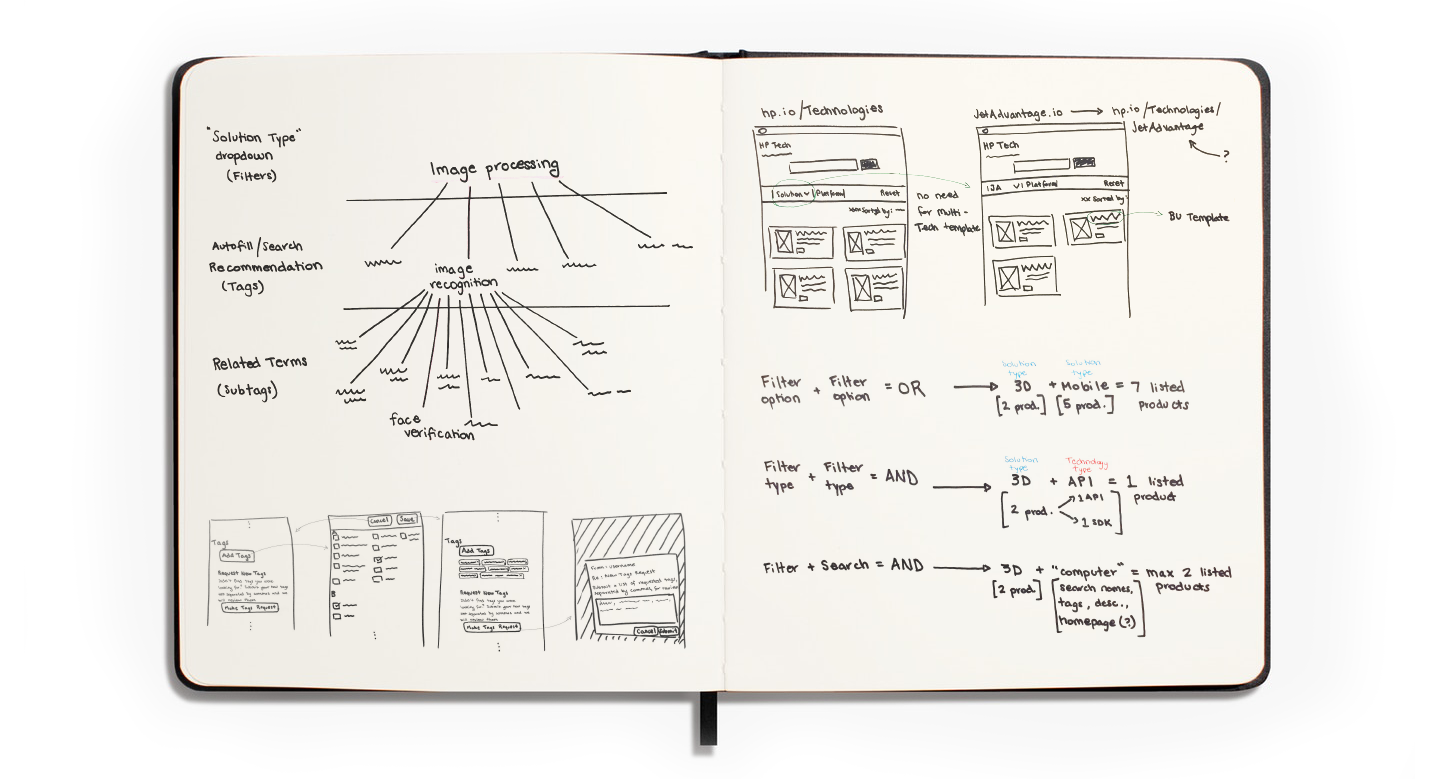 "Solution Type"
dropdown
(Filters)
Image processing
Autofill/Search
Recommendation
(Tags)
image
recognition
Related Terms
(Subtags)
face
verification
Tags
Add Tags
Request New Tags
Didn't find tags you were
looking for? Submit your new tags
are separated by commas and we
will review them.
Make Tags Request
Cancel
Save
A
B
Tags
Add Tags
Request New Tags
Didn't find tags you were
looking for? Submit your new tags
are separated by commas and we
will review them.
Make Tags Request
From: Username
Re: New Tags Request
Submit a list of requested tags,
separated by commas, for review
Cancel
Submit
hp.io/Technologies
HP Tech
Solution
Platform
Reset
xxx Sorted by:
no need
for multi-
Tech template
JetAdvantage.io → hp.io/Technologies/
JetAdvantage
?
HP Tech
JA
Platform
Reset
xx Sorted by:
BU Template
Filter option + Filter option = OR
Solution type
Solution type
3D + Mobile = 7 listed products
[2 prod.] [5 prod.]
Filter type + Filter type = AND
Solution type
Technology type
3D + API = 1 listed product
2 prod.
1 API
1 SDK
Filter + Search = AND
3D + "computer" = max 2 listed products
[2 prod.]
search names,
tags, desc.,
homepage (?)